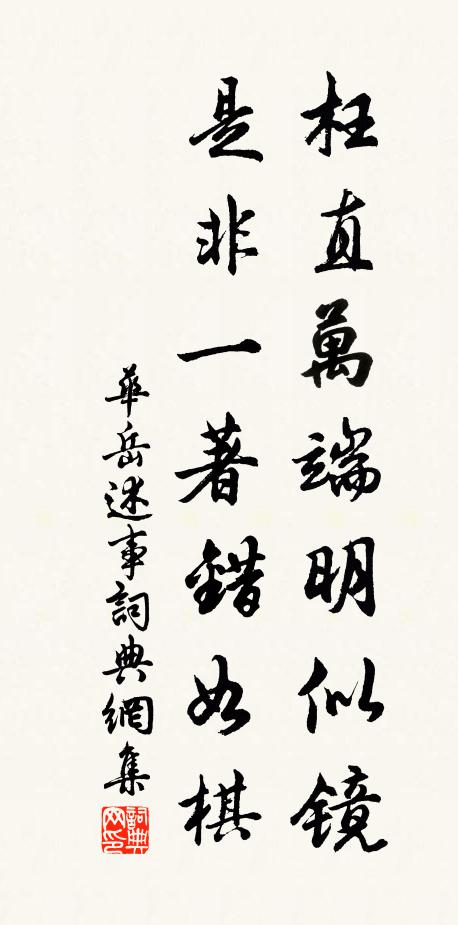 枉直萬端明似鏡
是非一著錯如棋
華岳述事詞典網集
詞典
网印